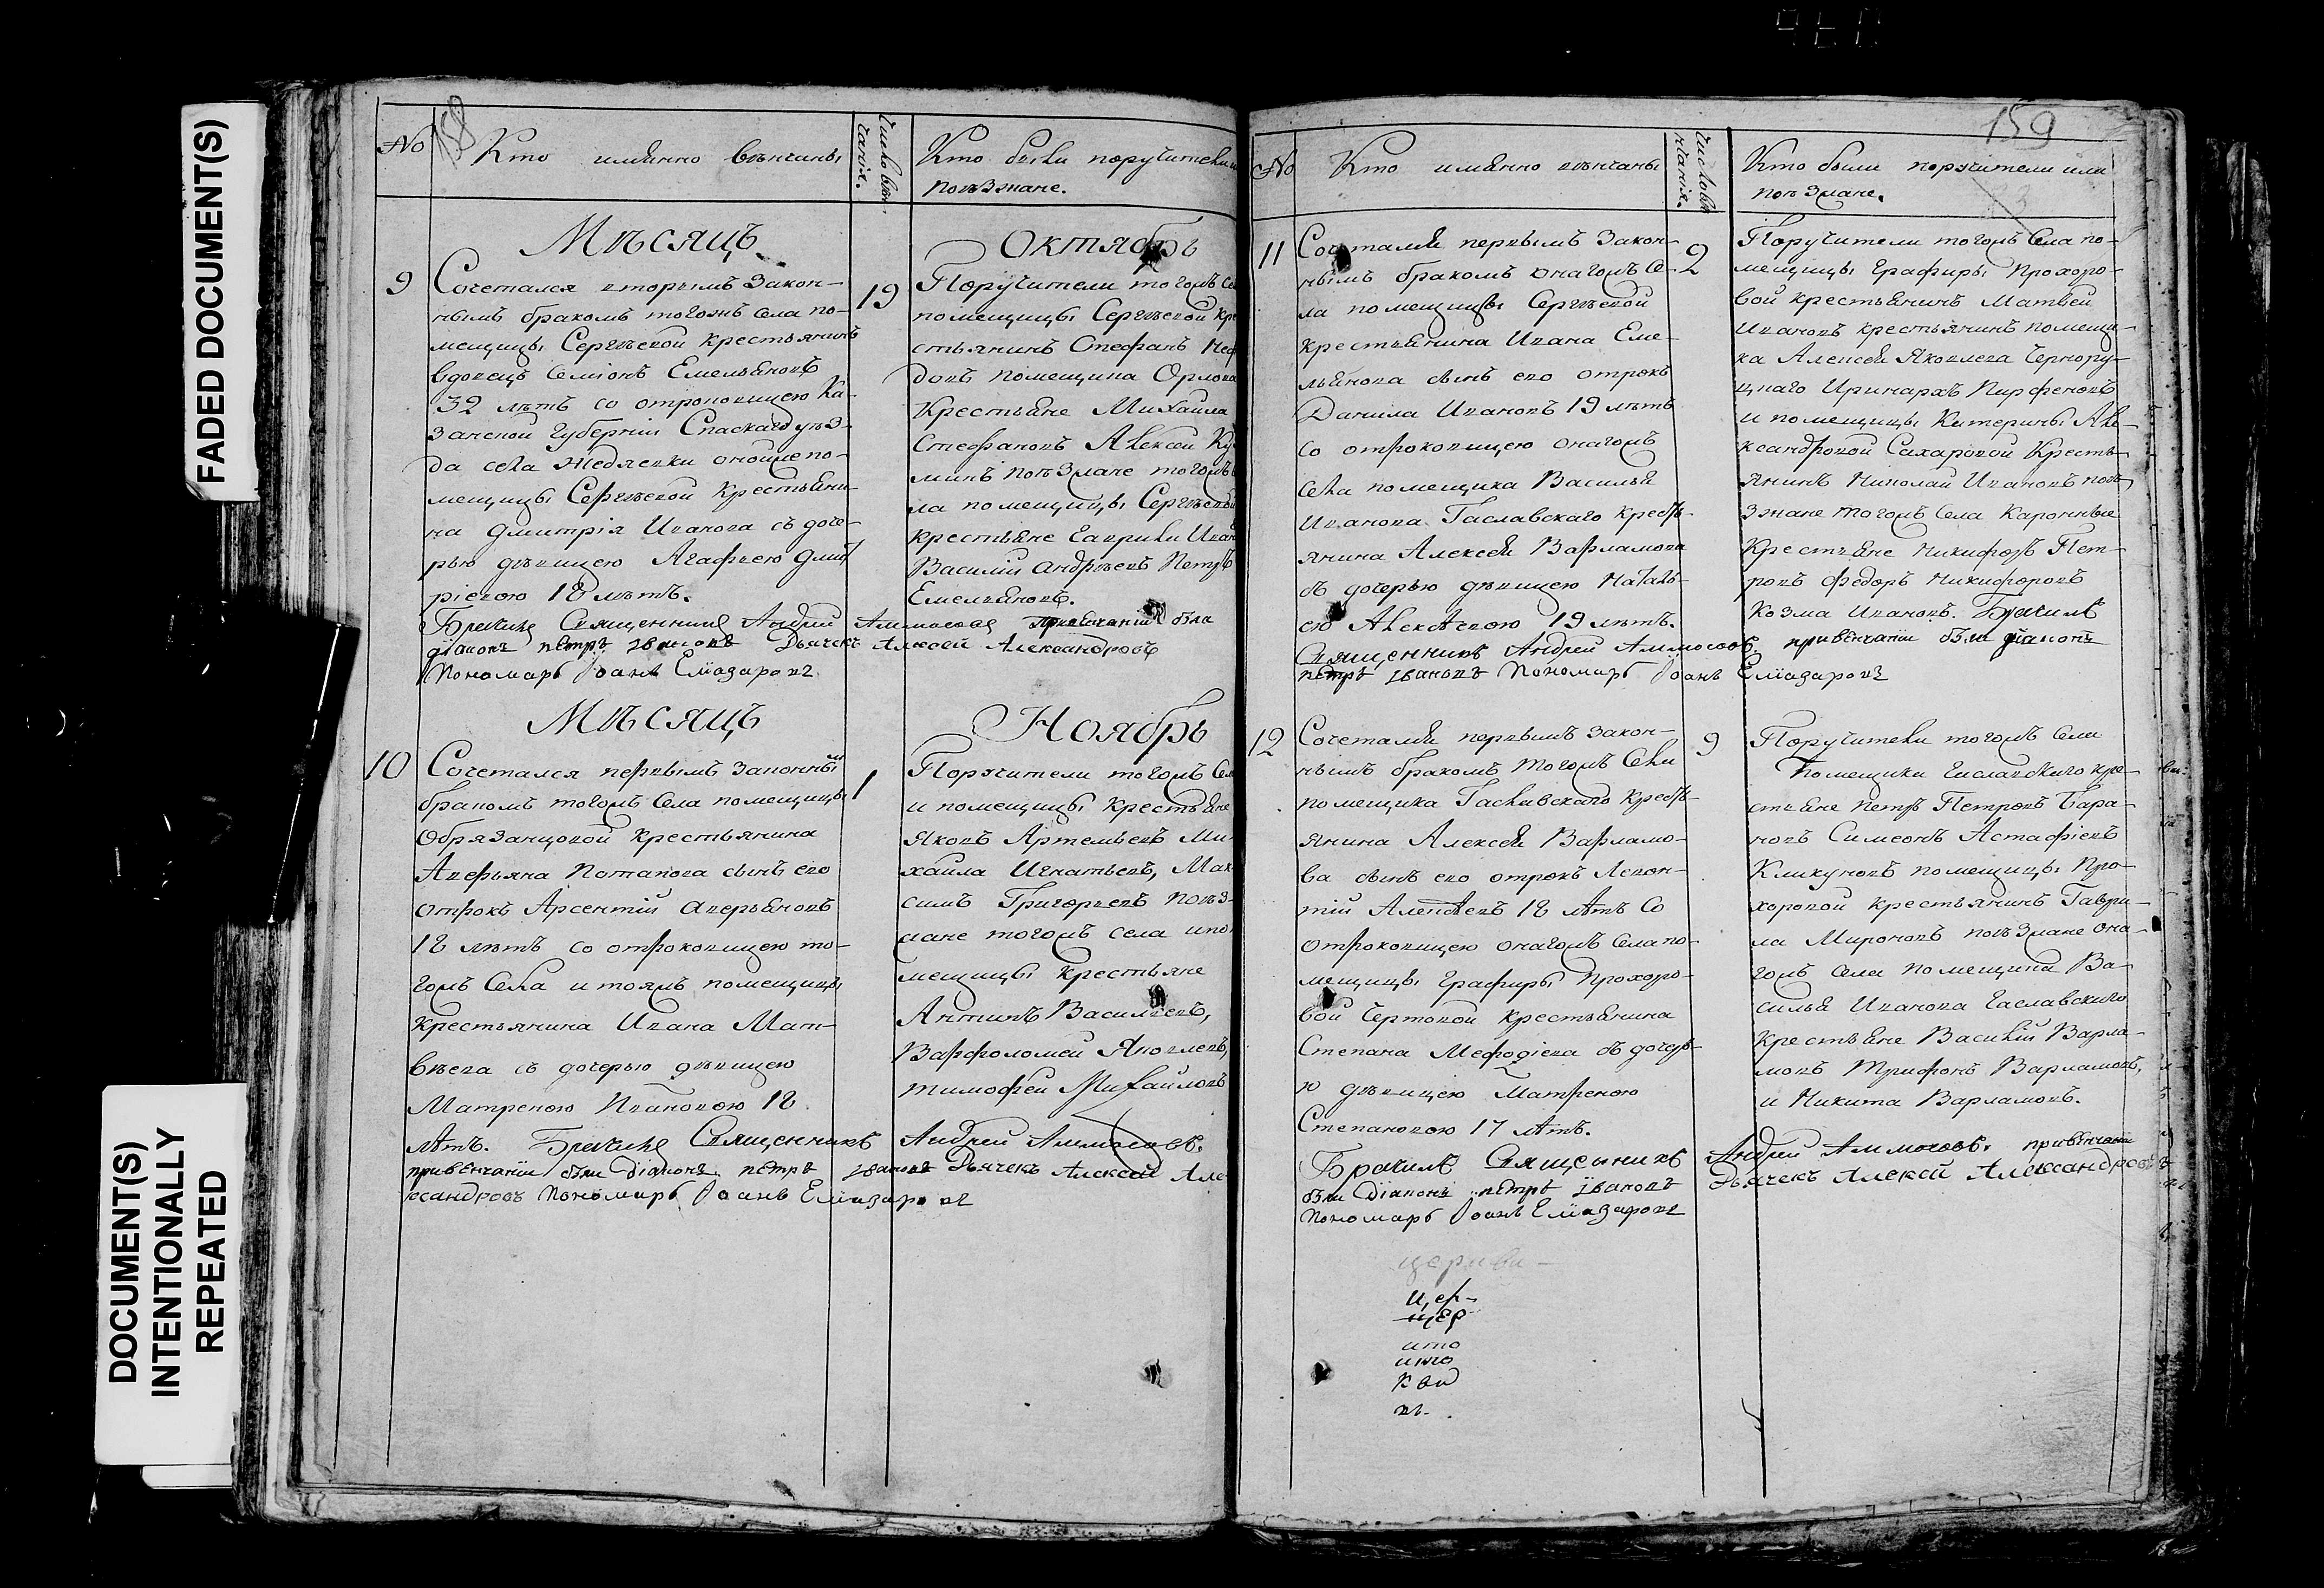 FADED DOCUMENT(S)
DOCUMENT(S)
INTENTIONALLY
REPEATED
158
№
Кто имянно вѣнчаны
Число вѣн-
чанія.
Кто были поручители
поѣзжане.
Мѣсяцъ
Октябрь
9
Сочетался вторымъ закон-
нымъ бракомъ тогожъ села по-
мещицы Сергѣевой крестьянинъ
вдовецъ Семіонъ Емельяновъ
32 лѣтъ со отроковицею Ка-
занской губерніи Спаскаго уѣз-
да села Жедяевки оной же по-
мещицы Сергѣевой крестьяни-
на Дмитрія Иванова съ доче-
рью дѣвицею Агафьею Дмит
ріевою 18 лѣтъ.
19
Поручители тогожъ се
помещицы Сергѣевой кре
стьянинъ Стефанъ
довъ помещика Орлова
Крестьяне Михаила
Стефановъ Алексей Ку
минъ поѣзжане тогожъ
ла помещицы Сергѣевой
крестьяне Гаврила Иван
Василій Андрѣевъ Петръ
Емельяновъ.
Священникъ Андрей Аммосовъ при венчаніи были
діаконъ петръ ивановъ Дьячекъ Алексей Александровъ
Пономарь Іоаннъ Елиазаровъ
Мѣсяцъ
Ноябрь
10
Сочетался первымъ законнымъ
бракомъ тогожъ села помещицы
Обрязанцовой крестьянина
Аверьяна Потапова сынъ его
отрокъ Арсентій Аверьяновъ
18 лѣтъ со отроковицею то-
гожъ села и тояжъ помещицы
крестьянина Ивана Мат-
вѣева съ дочерью дѣвицею
Матреною Ивановою 18
лѣтъ.
1
Поручители тогожъ сел
и помещицы крестьяне
Яковъ Артемьевъ Ми-
хайла Игнатьевъ, Мак-
симъ Григорьевъ поѣз-
жане тогожъ села и по
мещицы крестьяне
Антипъ Васильевъ,
Варфоломей Яковлевъ,
тимофей Михайловъ
Священникъ Андрей Аммосовъ.
при венчаніи были діаконъ петръ ивановъ Дьячекъ Алексей Але
ксандровъ Пономарь Іоаннъ Елиазаровъ
159
№
Кто имянно вѣнчаны
Число вѣ-
нчанія.
Кто были поручители или
поѣзжане.
11
Сочетался первымъ закон-
нымъ бракомъ онагожъ се-
ла помещицы Сергѣевой
крестьянина Ивана Еме-
льянова сынъ его отрокъ
Данила Ивановъ 19 лѣтъ
со отроковицею онагожъ
села помещика Василья
Иванова Гаславскаго кресть-
янина Алексея Варламова
съ дочерью дѣвицею Наталь-
ею Алексѣевою 19 лѣтъ.
2
Поручители тогожъ села по-
мещицы Графиры Прохоро-
вой крестьянинъ Матвей
Ивановъ крестьянинъ помещи-
ка Алексея Яковлева Черпору-
цкаго Иринархъ Парфеновъ
и помещицы Катерины Але-
ксандровой Сахаровой Кресть-
янинъ Николай Ивановъ поѣ-
зжане тогожъ села
Крестьяне Никифоръ Пет-
ровъ Федоръ Никифоровъ
Козма Ивановъ. Брачилъ
Священникъ Андрей Аммосовъ. при венчаніи были діаконъ
петръ ивановъ Пономарь Іоаннъ Елиазаровъ
12
Сочетался первымъ закон-
нымъ бракомъ тогожъ села
помещика Гаславскаго кресть-
янина Алексея Варламо-
ва сынъ его отрокъ Леван-
тій Алексѣевъ 18 лѣтъ со
отроковицею онагожъ села по-
мещицы Графиры Прохоро-
вой Чертовой крестьянина
Степана Мефодіева съ дочерь-
ю дѣвицею Матреною
Степановою 17 лѣтъ.
9
Поручители тогожъ села
Помещика Гаславскаго кре-
стьяне Петръ Петровъ Бара-
новъ Симеонъ Астафіевъ
Кликуновъ помещицы Про-
хоровой крестьянинъ Гаври-
ла Мироновъ поѣзжане она-
гожъ села помещика Ва-
силья Иванова Гаславскаго
Крестьяне Василій Варла-
мовъ Трифонъ Варламовъ,
и Никита Варламовъ.
Брачилъ Священникъ Андрей Аммосовъ. при венчаніи
были діаконъ петръ ивановъ Дьячекъ Алексей Александровъ
Пономарь Іоаннъ Елиазаровъ
церкви
цер-